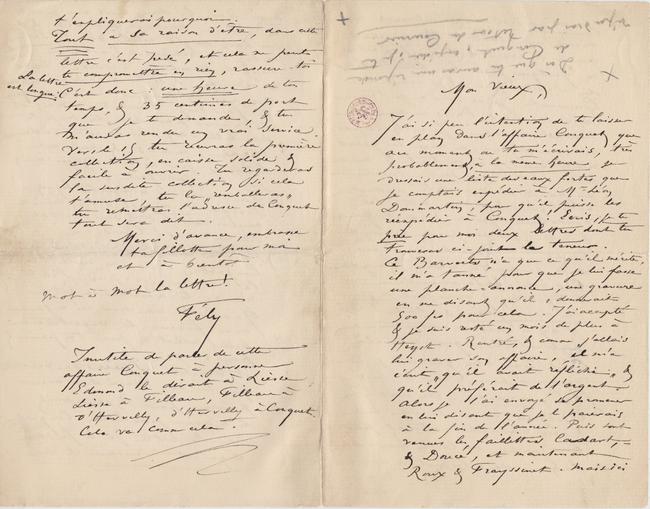 Mon Vieux,
J'ai si peu l'intention de te laisser
en plan dans l'affaire Conquet, que
au moment où tu m'écrivais, très
probablement, à la même heure, je
dressais une liste des eaux fortes que
je comptais expédier à Mr Léon
Dommartin, pour qu'il puisse les
réexpédier à Conquet. Ecris, je te
prie pour moi deux lettres dont tu
trouveras ci-joint la teneur.
Ce n'a que ce qu'il mérite,
il m'a tanné pour que je lui fasse
une planche-annonce, une gravure
en me disant qu'il donnait
500 frs pour cela. J'ai accepté
& je suis resté un mois de plus à
Heyst. Rentré, & comme j'allais
lui graver son affaire, il m'a
écrit, qu'il avait réfléchi, &
qu'il préférait de l'argent.
Alors je l'ai envoyé se promener
en lui disant que je le paierais
à la fin de l'année. Puis sont
venues les faillites, Cadart,
& Doucé, et maintenant
Roux & Frayssinet. Mais ici
t'expliquerai pourquoi.
Tout a sa raison d'être, dans cette
lettre c'est pesé, et cela ne peut
te compromettre en rien, rassure-toi
La lettre
est longue!
C'est donc: une heure de ton
temps, & 35 centimes de port
que je te demande, & tu
m'auras rendu un vrai service.
& tu recevras la première
collection, en caisse solide &
facile à ouvrir. Tu regarderas
la susdite collection si cela
t'amuse, tu la "remballeras"
tu remettras l'adresse de Conquet
tout sera dit.
Merci d'avance, embrasse
ta fillotte pour moi
et à bientôt
Mot à mot la lettre!
Fély
Inutile de parler de cette
affaire Conquet à personne
Edmond le dirait à Liesse
Liesse à Filleau, Filleau à
d'Hervilly, d'Hervilly à Conquet.
Cela va comme cela!